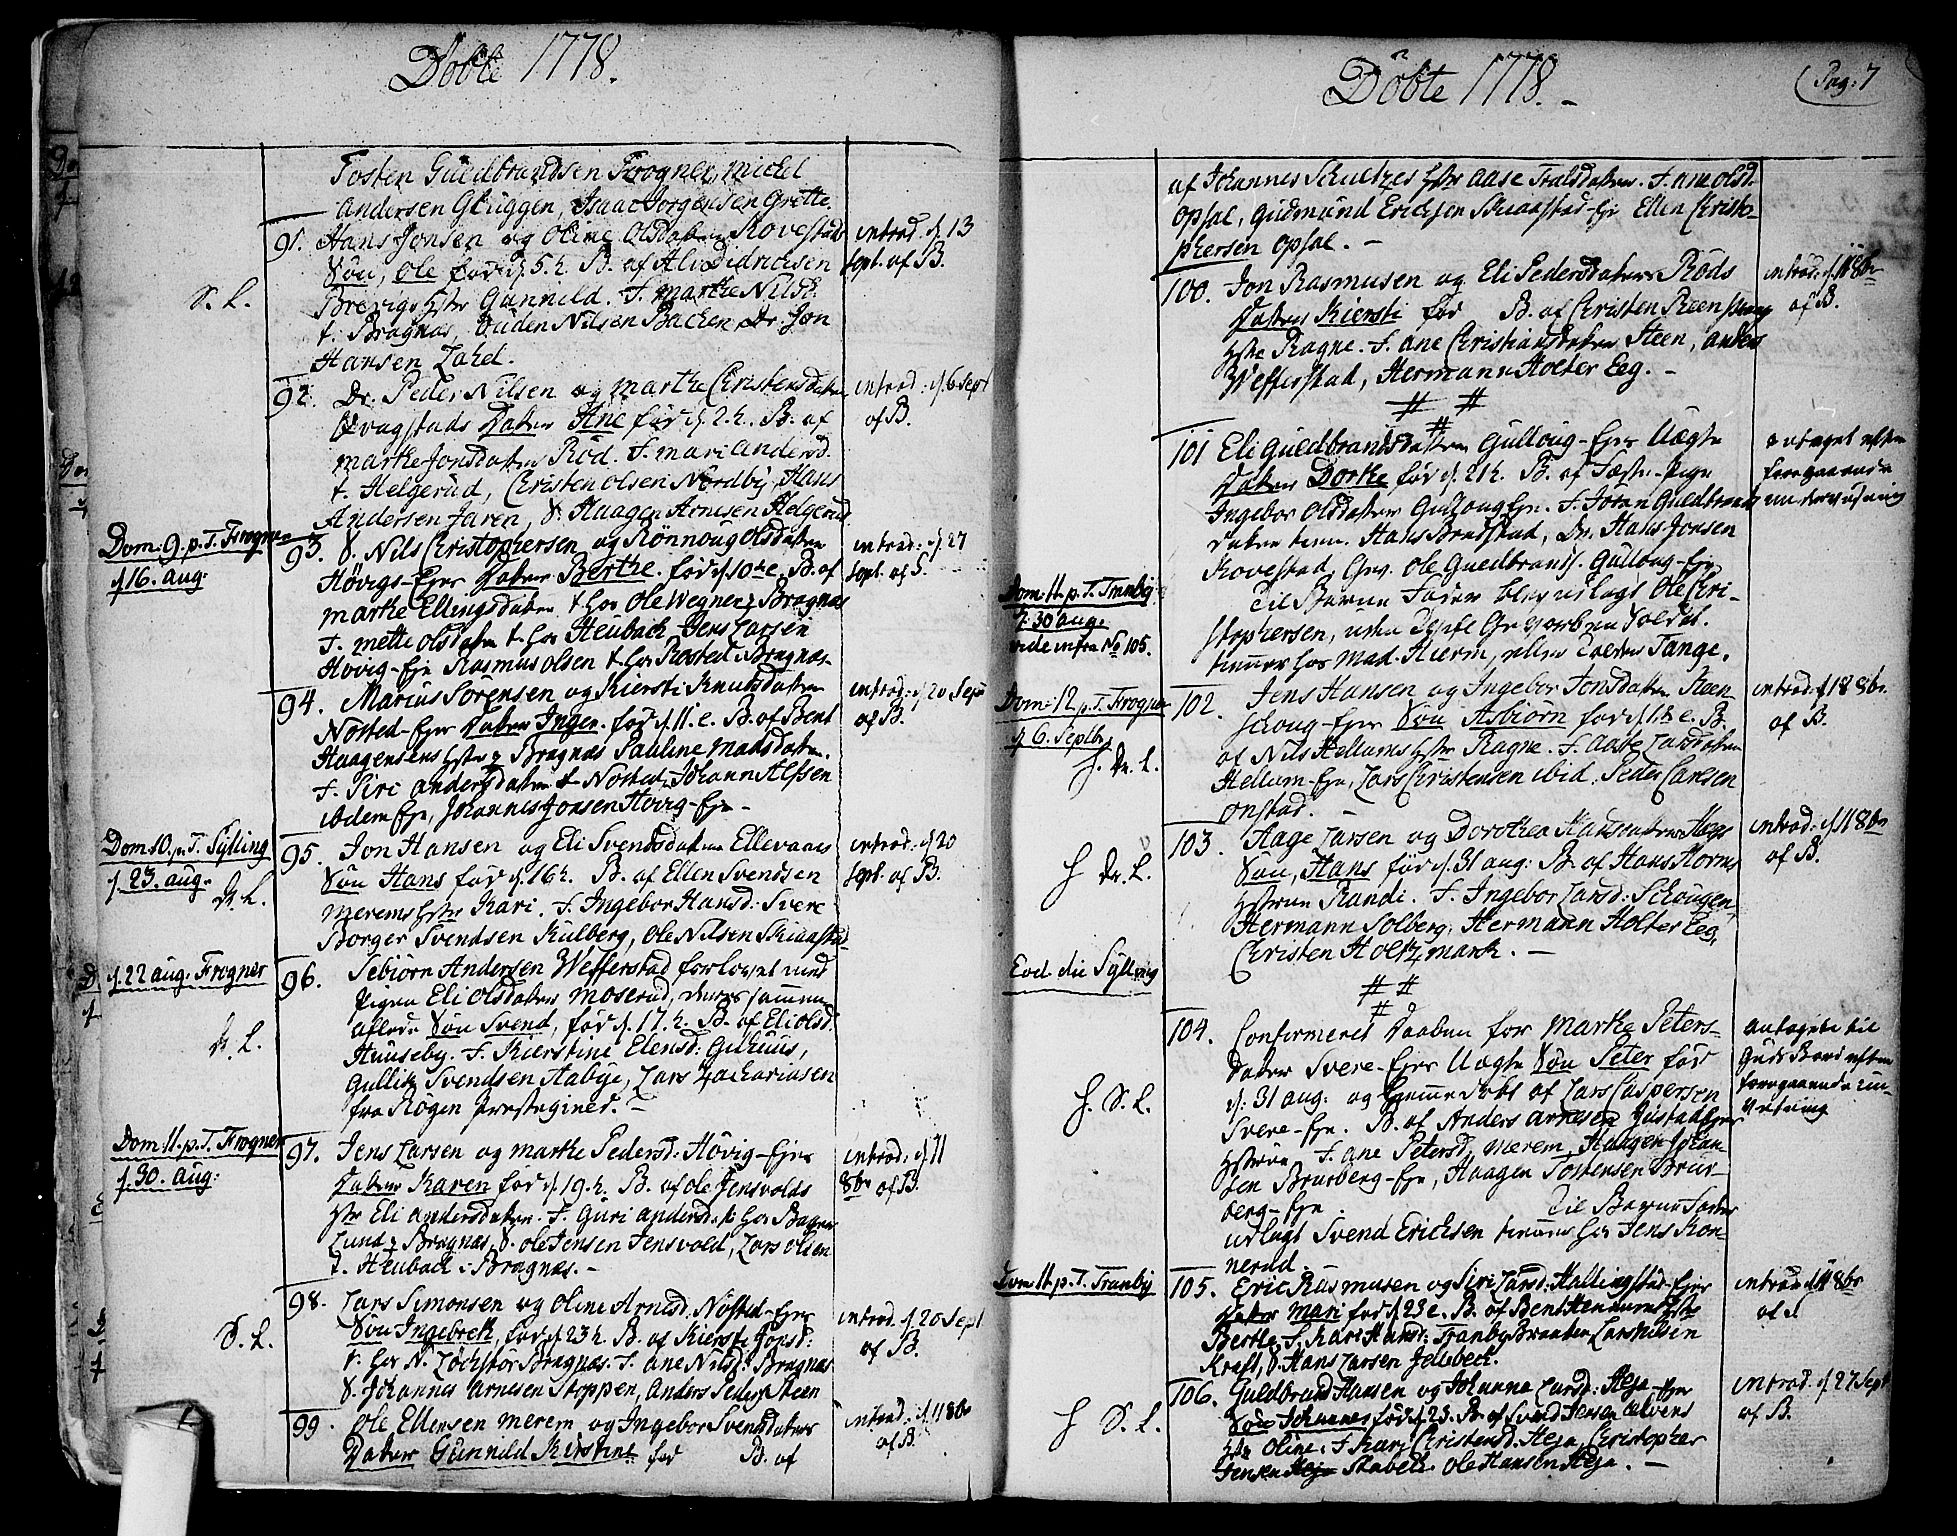 Döbte 1778.
Tosten Guldbrandsen Frogner, Michel
Andersen Gluggen, Isaac Jorgensen Grette.
91. Hans Jonsen og Oline Olsdatter Kovestads
Søn, Ole fød d. 5. h. B. af Alv Didricksen
Brevigs Hstr Gunnild. F. Marthe Nilsd.
t. Bragnæs, Guden Nilsen Bachen, Dr. Jon
Hansen Lahel.
introd. d. 13
Sept. af B.
S. L.
92. Dr. Peder Nilsen og Marthe Christensdatter
Qvagstads Datter Ane fød d. 2. h. B. af
Marthe Jonsdatter Röd. F. Mari Andersd.
t. Helgerud, Christen Olsen Nordby, Hans
Andersen Jaren, S. Haagen Arnesen Helgerud
introd: d. 6 Sept
af B.
Dom: 9. p. T. Frogner
d. 16. aug:
93. S. Nils Christophersen og Rönnoug Olsdatter
Hövigs-Ejes Datter Berthe. fød d. 10de. B. af
Marthe Ellingsdatter t. hos Ole Wegner z Bragnæs
F. Mette Olsdatter t. hos Heuback, Jens Larsen
Hovig-Eje Rasmus Olsen t. hos Rosted i Bragnæs.
introd: d. 27
Sept. af S.
94. Marius Sörensen og Kiersti Knudsdatter
Nösted-Ejes Datter Inger. fød d. 11. e. B. af Bent
Haagensens Hstr z Bragnæs Pauline Madsdatter.
F. Siri Andersdatter t. Nosted, Johann Alfsen
ibidem Eje, Johannes Jonsen Hovig-Eje.
introd: d. 20 Sept
af B.
Dom: 10. p. T. Sylling
d. 23. aug.
Dr. L.
95. Jon Hansen og Eli Svendsdatter Ellevaanes
Søn Hans fød d. 16 h. B. af Ellen Svendsen
Merems Hstr Kari. F. Ingebor Hansd: Svere
Borger Svendsen Kulberg, Ole Nilsen Skiaastad
introd. d. 20
Sept. af B.
d. 22 aug: Frogner
Dr. L.
96. Sebiörn Andersen Wefferstad forlovet med
Pigen Eli Olsdatter Moserud, deres sammen
aflede Søn Svend, fød d. 17. h. B. af Eli Olsd.
Huuseby. F. Kierstine Elensd:
Gullik Svendsen Aabye, Lars Zachariasen
fra Rögen Prestegield.
Dom: 11. p. T. Frogner
d. 30. aug:
97. Jens Larsen og Marthe Pedersd: Hövig-Ejes
Datter Karen fød d. 19. h. B. af Ole Jensvolds
Hstr Eli Andersdatter. F. Guri Andersd. t. hos
Lund z Bragnæs, S. Ole Jensen Jensvold, Lars Olsen
t. Heuback i Bragnæs.
introd: d. 11
8br af B.
98. Lars Simonsen og Oline Arnesd. Nosted-Ejes
Søn Ingebreth, fød d. 23 h. B. af Kiersti Jonsd:
t. hos N. Lochstör Bragnæs. F. Ane Nilsd: Bragnæs
S. Johannes Arnesen Stoppen, Anders Peders: Steen
introd. d. 20 Sept
af B.
S. L.
99. Ole Ellensen Merem og Ingebor Svendsdatter
Datter Gunnild Kirstine fød B. af
introd: d. 11 8br
af B.
Döbte 1778.
Pag: 7
af Johannes Schultzes Hstr Aase Tralsdatter. F. Ane Olsd.
Opsal, Gudmund Ericksen Skiaastad-Eje Ellen Christo-
phersen Opsal.
100. Jon Rasmusen og Eli Pedersdatter Röds
Datter Kiersti fød B. af Christen Reenskoug
Hstr Ragne. F. Ane Christiansdatter Steen, Anders
Wefferstad, Hermann Holter Eeg.
introd: d. 11 8br
af B.
101 Eli Guldbrandsdatter Gulloug-Ejes Uægte
Datter Dorthe fød d. 21 h. B. af Fæste-Pige
Ingebor Olsdatter Gulloug Eje. F. Joran Guldbrands
datter tien. Hans Bredstad, Dr. Hans Jonsen
Kovestad, Grv. Ole Guldbrands. Gulloug-Eje
Til Barne Fader blev udlagt Ole Chri-
stophersen, Soldat.
tienner hos Mad. Hierm, eller Tange.
antaget efter
foregaaende
undervisning
Dom. 11. p. T. Tranby
d. 30 aug.
vide infra No 105.
Dom: 12. p. T. Frogner
d. 6. Septbr
H. Dr. L.
102. Jens Hansen og Ingebor Jonsdatter Reen-
schoug-Ejes Søn Asbiörn fød d. 1. h e. B.
af Nils Hellums Hstr Ragne. F. Aase Larsdatter
Hellum-Eje, Lars Christensen ibid. Peder Larsen
Onstad.
introd: d. 18 8br.
af B.
103. Aage Larsen og Dorothea Hansdatter Horns
Søn, Hans fød d. 31 aug: B. af Hans Horns
Hstrue Randi. F. Ingebor Larsd: Schougen,
Hermann Solberg, Hermann Holter Eeg,
Christen Holtzmark.
introd: d. 11 8br
af B.
H Dr. L.
Eod. die Sylling
104. Confirmeret Daaben for Marthe Peters-
datter Svere-Ejes Uægte Søn Peter fød
d: 31 aug: og hiemmedøbt af Lars Caspersen
Svere-Eje. B. af Anders Arnesen Gustad-Ejes
Hstrue F. Ane Petersd. Merem, Haagen Han-
sen Brurberg-Eje, Haagen Tostensen Brur-
berg-Eje. Til Barne Fader
udlagt Svend Ericksen tienner hos Jens Kon-
nerud.
antaget til
Guds Bord efter
foregaaende un-
dervisning
H. S. L.
Dom 11. p. T. Tranby
105. Eric Rasmusen og Siri Larsd. Hallingstad-Ejes
Datter Mari fød d. 23 e. B. af Bent Hennums Hstr
Berthe. F. Kari Hansd: Tranby Braaten Lars Nilsen
Kraft, S. Hans Larsen Jellebeck.
introd: d. 11 8br
af S.
106. Guldbrand Hansen og Johanne Larsd: Heja-Eje
Søn Johannes fød d. 23. B. af Svend Jensen Alvens
Hstr Oline. F. Kari Christensd. Heja, Christopher
Jensen Heje Stabek. Ole Hansen Heja.
introd. d. 27 Sept
af B.
H S. L.